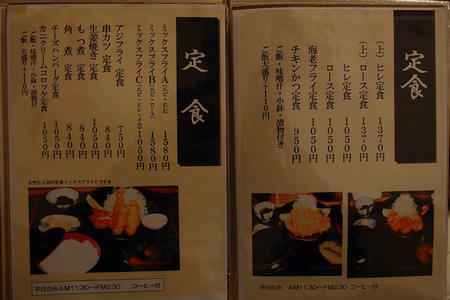 定食
ミックスフライA(エビ・ヒレ) 1580円
ミックスフライB(エビ・ロース) 1580円
ミックスフライC(エビ・ヒレ・イカ) 1050円
アジフライ 定食 750円
串カツ 定食 840円
生姜焼き 定食 1050円
もつ煮 定食 840円
角煮 定食 840円
チーズハンバーグ定食 1050円
カニクリームコロッケ定食 1050円
ご飯・味噌汁・小鉢・漬物付
ご飯大盛り+110円
女性に人気の定食ミックスフライCです★
平日のみ AM11:30〜PM2:30 コーヒー付
定食
(上)ヒレ定食 1370円
(上)ロース定食 1370円
ヒレ定食 1050円
ロース定食 1050円
海老フライ定食 1050円
チキンかつ定食 950円
ご飯・味噌汁・小鉢・漬物付き
ご飯大盛り+110円
平日のみ AM11:30〜PM2:30 コーヒー付